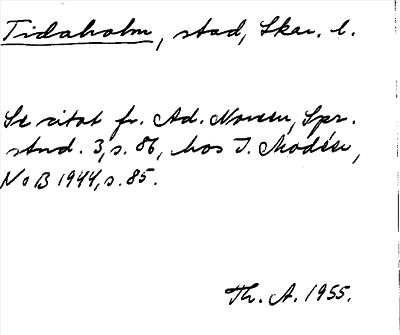 Tidaholm, stad, Skar. l.
Se citat fr. Ad. Noreen, Spr.
stud. 3, s. 86, hos I. Modéer,
NoB 1944, s. 85.
Th. A. 1955.